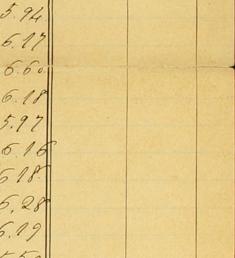 5.94
6.17
6.60
6.18
5.97
6.16
6.18
6.28
6.19